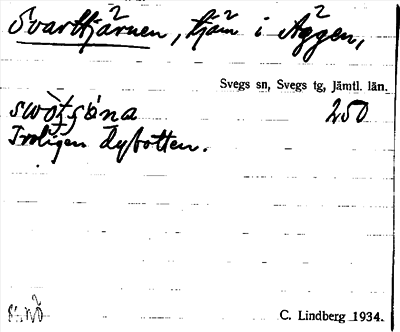 Svarttjärnen, tjärn i Äggen,
Svegs sn, Svegs tg, Jämtl. län.
250
Troligen dybotten.
C. Lindberg 1934.